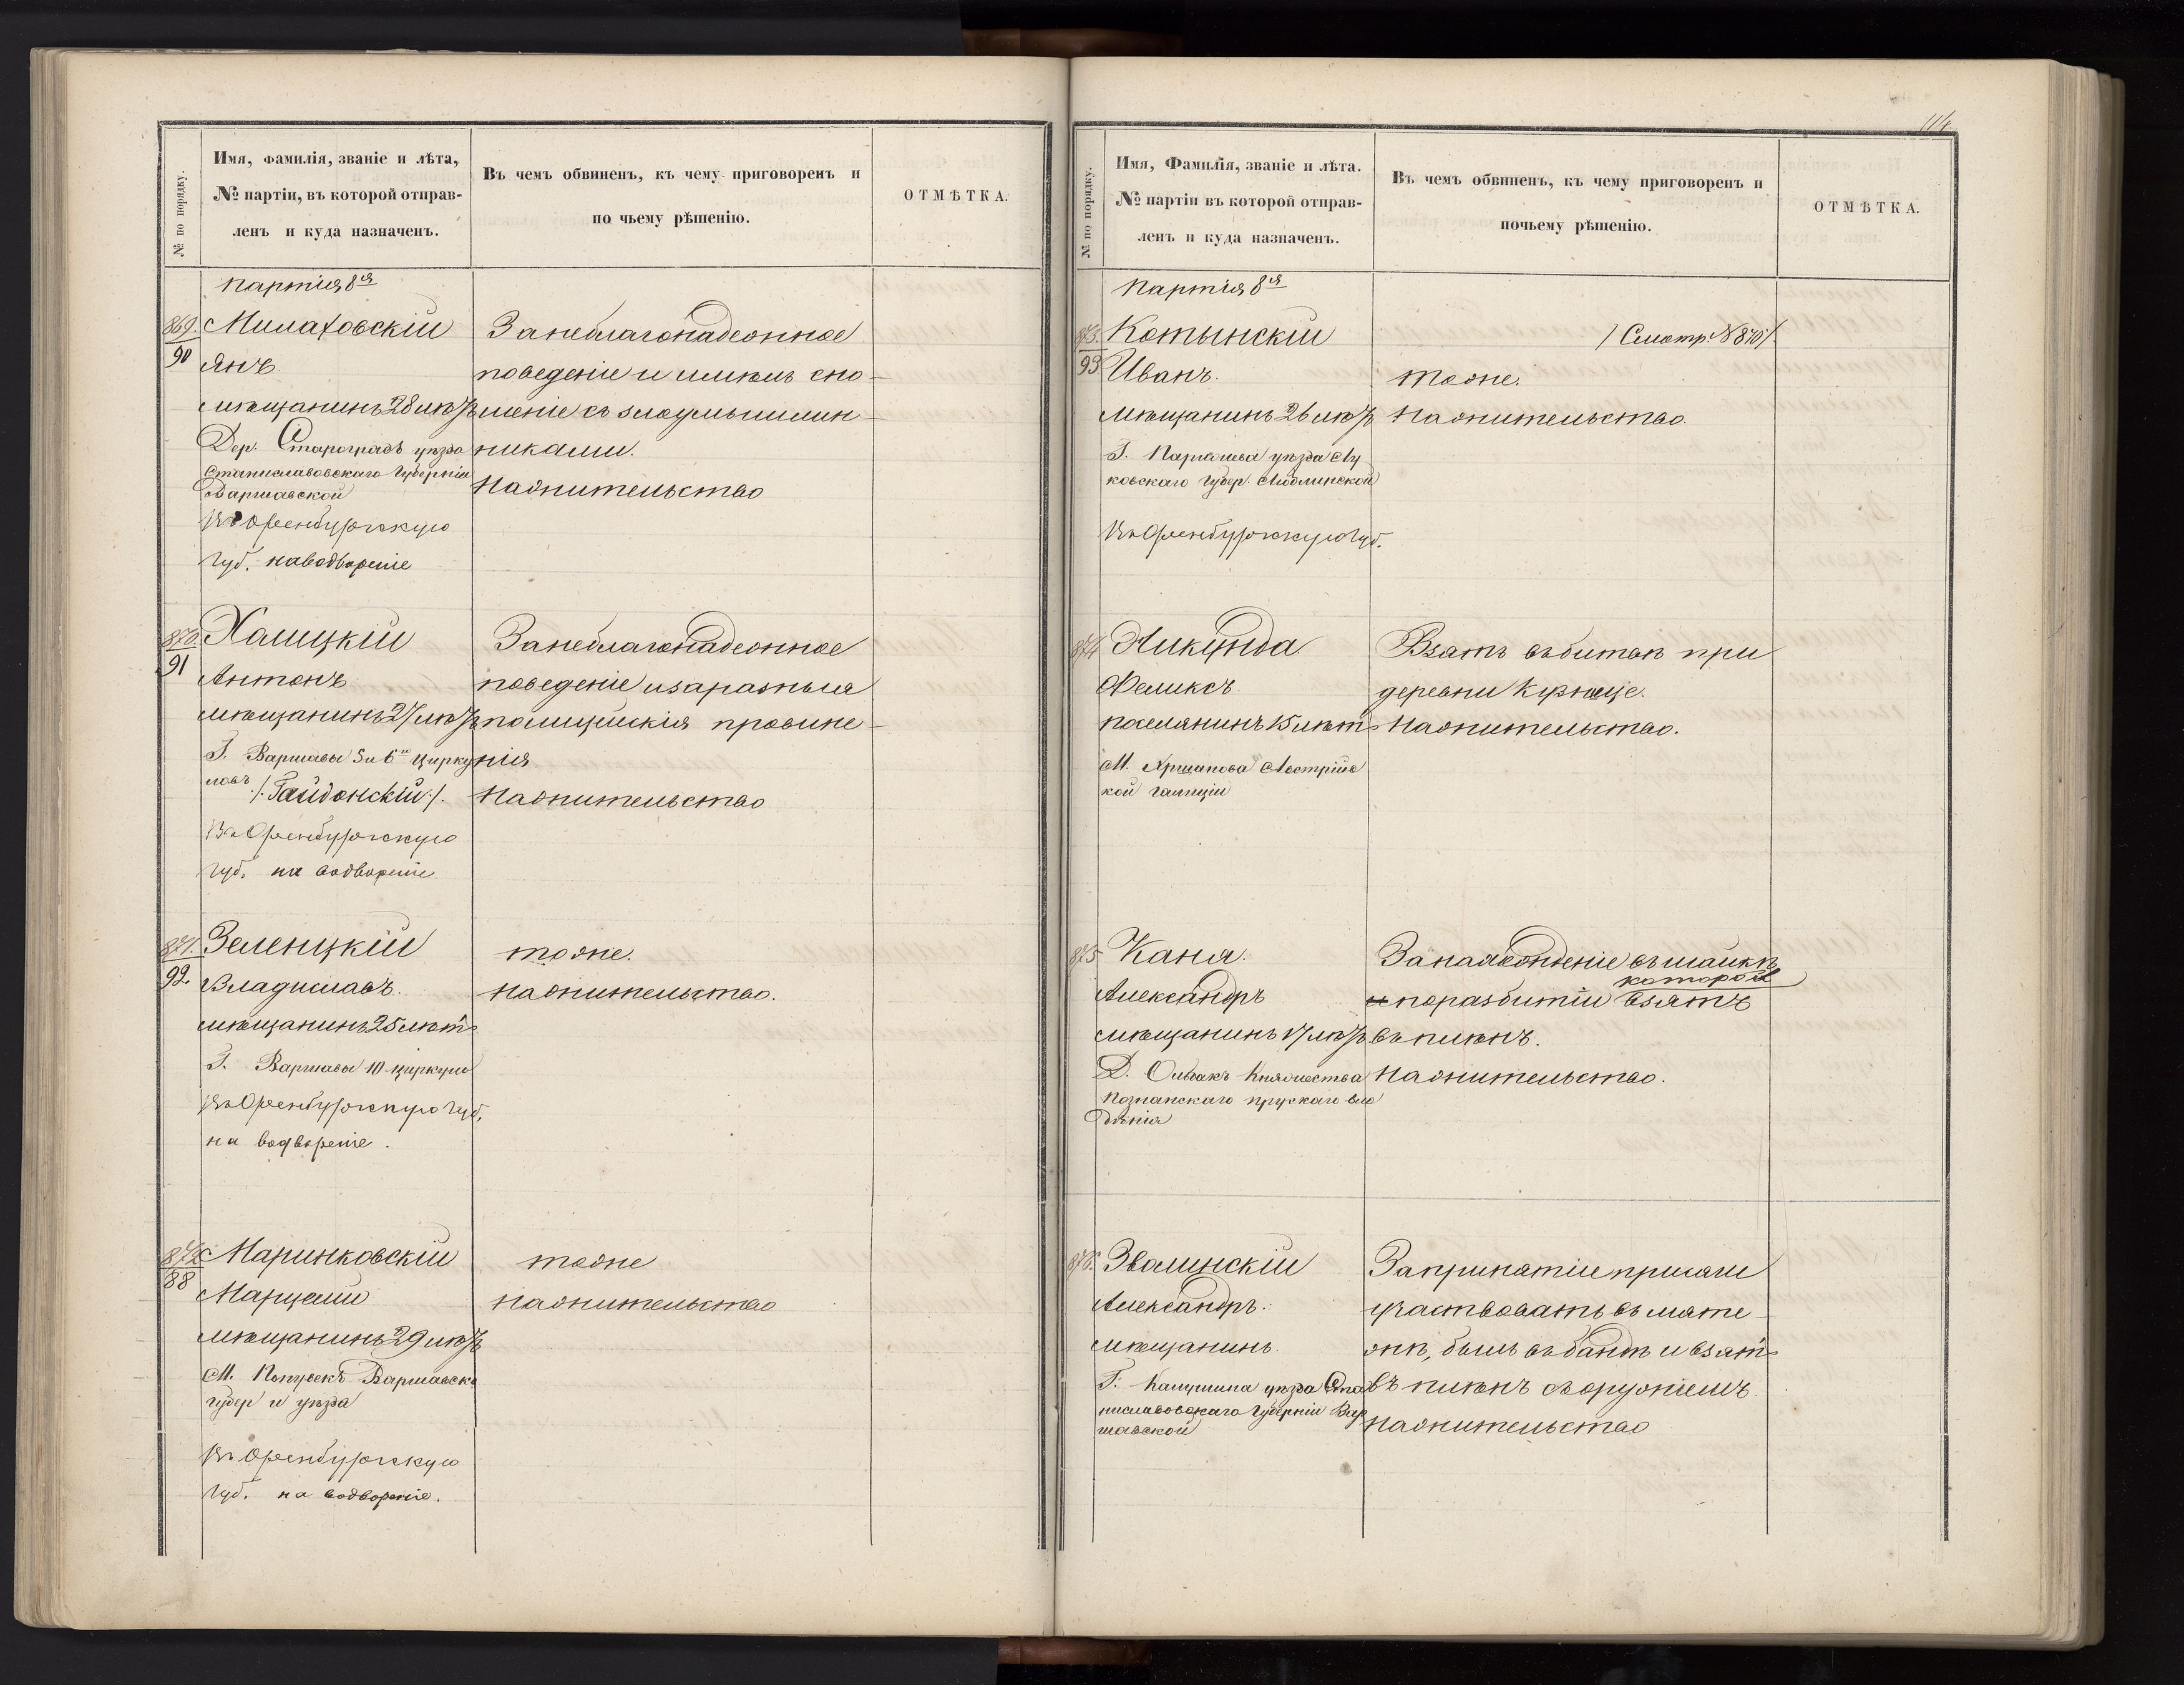 № по порядку.
Имя, фамилія, званіе и лѣта,
№ партіи, въ которой отправ-
ленъ и куда назначенъ.
Въ чемъ обвиненъ, къ чему приговоренъ и
по чьему рѣшенію.
ОТМѢТКА.
Партія 8я
869.
90
Милаховскій
Янъ
мѣщанинъ 28 лѣтъ
Дер. Староградъ уѣзда
Станиславовскаго Губерніи
Варшавской
Въ Оренбургскую
Губ. на водвореніе
За неблагонадежное
поведеніе и имѣлъ сно-
шеніе съ злоумышлен-
никами.
На жительство
870.
91
Халицкій
Антонъ
мѣщанинъ 27 лѣтъ
Г. Варшавы 5 и 6 цирку
ловъ /: Гайдонскій :/.
Въ Оренбургскую
Губ. на водвореніе
За неблагонадежное
поведеніе и за разныя
полицейскія провине-
нія
На жительство
871.
92
Зеленцкій
Владиславъ.
мѣщанинъ 25 лѣтъ
Г. Варшавы 10 циркула
Въ Оренбургскую Губ.
на водвореніе.
тоже.
на жительство.
872
88
Маринковскій
Марцелій
мѣщанинъ 29 лѣтъ
М. Варшавско
Губер и уѣзда
Въ Оренбургскую
Губ. на водвореніе.
тоже
на жительство
114
№ по порядку.
Имя, Фамилія, званіе и лѣта.
№ партіи въ которой отправ-
ленъ и куда назначенъ.
Въ чемъ обвиненъ, къ чему приговоренъ и
почьему рѣшенію.
ОТМѢТКА.
Партія 8я
873.
93
Котынскій
Иванъ.
мѣщанинъ 26 лѣтъ
Г. Парчева уѣзда Лу
ковскаго Губер. Люблинской
Въ Оренбургскую Губ.
/ Смотр. № 870 /.
тоже.
На жительство.
874
Ликунда
Феликсъ.
поселянинъ 15 лѣтъ
М. Австрійс
кой Галиціи
Взятъ въ битвѣ при
деревни
На жительство.
875
Каня.
Александръ
мѣщанинъ 17 лѣтъ
Д. Княжества
Познанскаго прускаго вла
дѣнія
За нахожденіе въ шайкѣ
которой
и по разбитіи взятъ
въ плѣнъ.
На жительство.
876.
Зволинскій
Александръ.
мѣщанинъ.
Г. Калушина уѣзда Ста
ниславовскаго Губерніи Вар
шавской
За принятіе присяги
участвовать въ мяте-
жѣ, былъ въ бандѣ и взятъ
въ плѣнъ съ оружіемъ.
На жительство